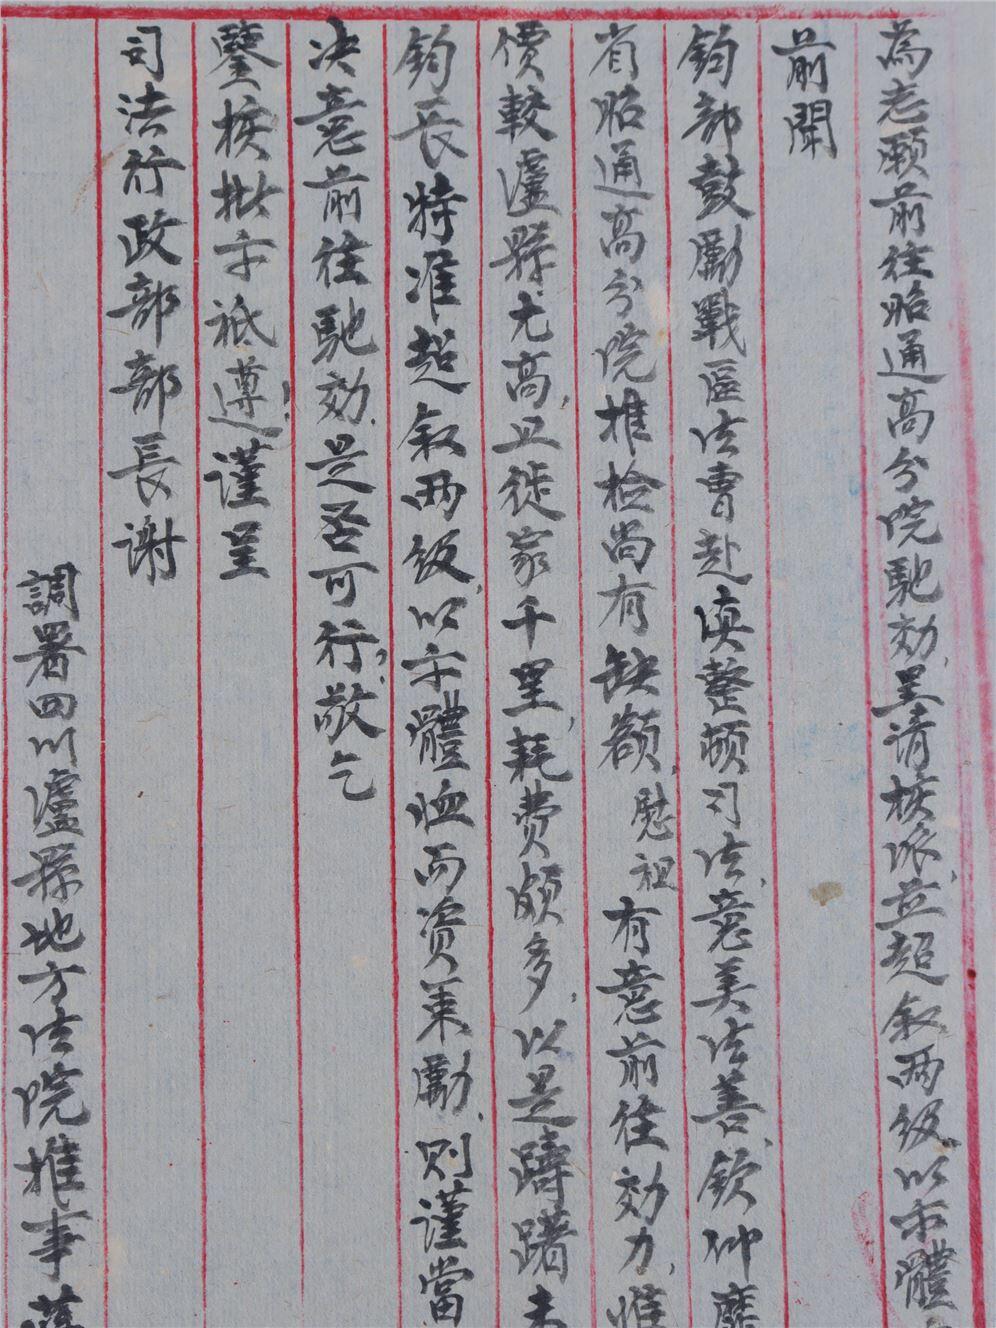 為志願前往昭通高分院馳効，呈請核派，並超叙两级，以示體
前聞
鈞部鼓勵戰區法曹赴滇整頓司法，意美法善，欽仰靡
省昭通高分院推檢尚有缺額，慰祖有意前往効力，惟
價較瀘縣尤高，且徙家千里，耗費頗多，以是躊躇未
鈞長特准超叙两级，以示體恤而资策勵，则谨當
决意前往馳効，是否可行，敬乞
鑒核批示祗遵！谨呈
司法行政部部長谢
調署四川瀘縣地方法院推事